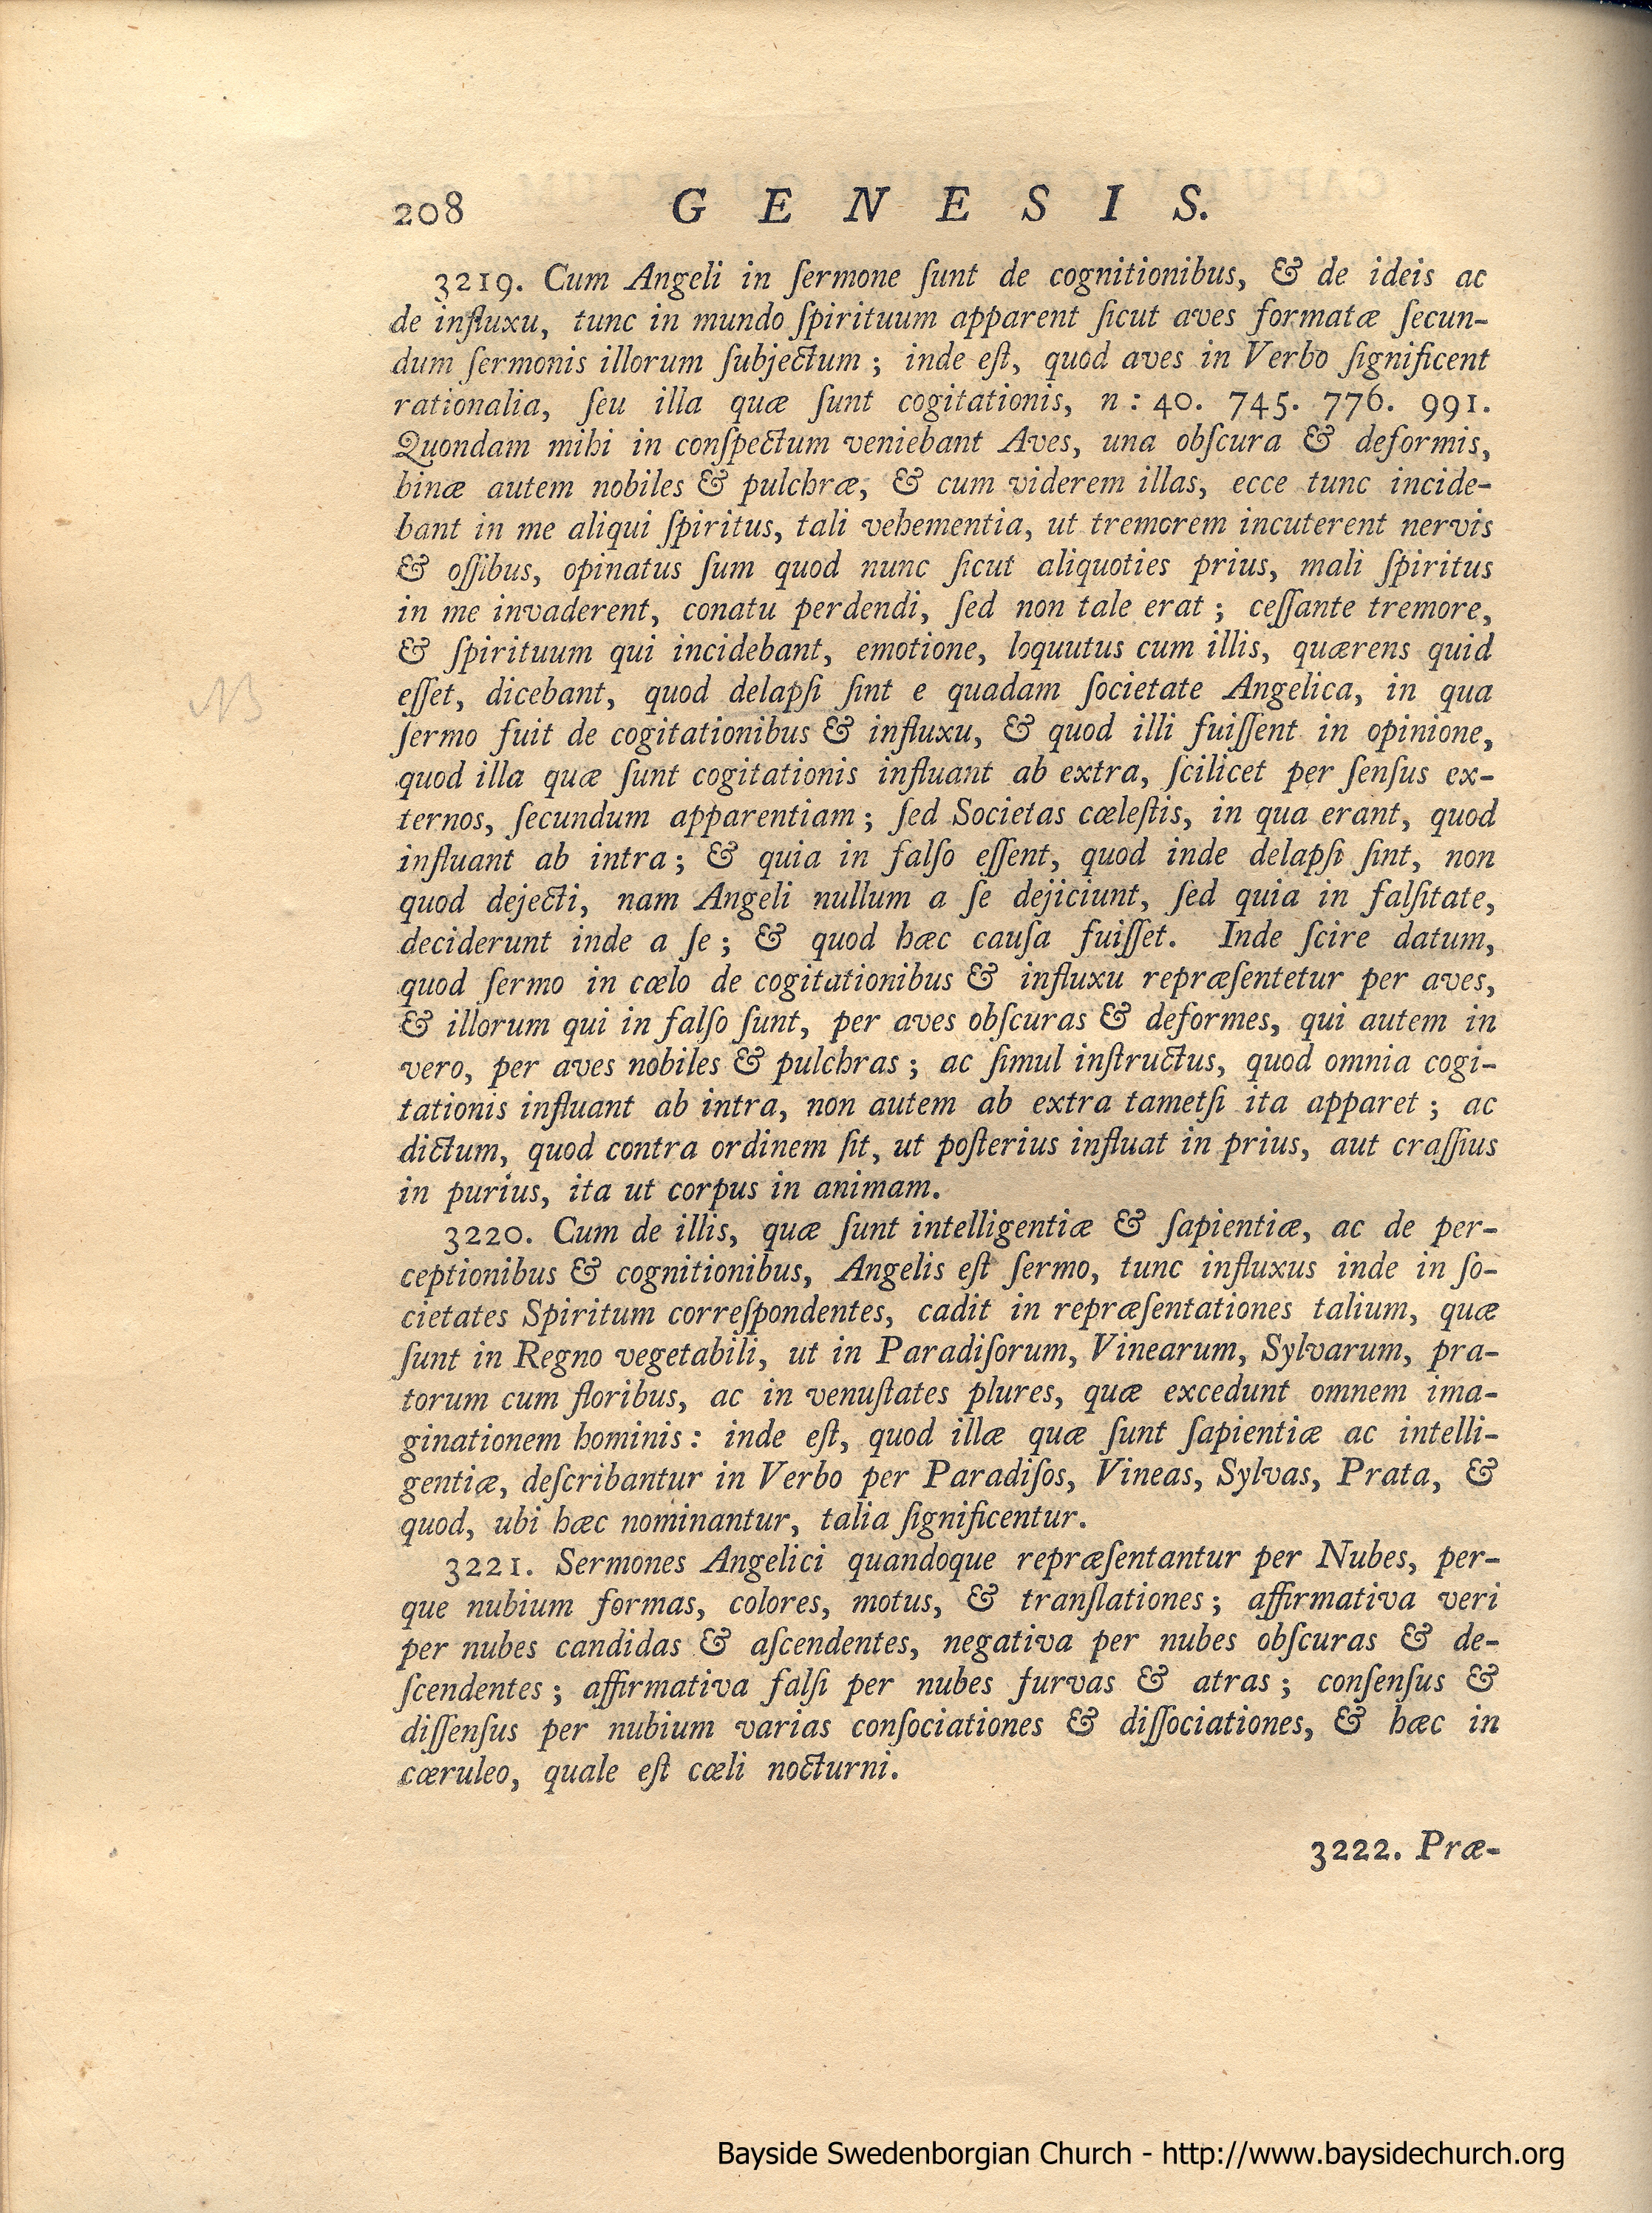 208 GENESIS.
3219. Cum Angeli in ſermone ſunt de cognitionibus, & de ideis ac
de influxu, tunc in mundo ſpirituum apparent ſicut aves formatæ ſecun-
dum ſermonis illorum ſubjectum ; inde eſt, quod aves in Verbo ſignificent
rationalia, ſeu illa quæ ſunt cogitationis, n : 40. 745. 776. 991.
Quondam mihi in conſpectum veniebant Aves, una obſcura & deformis,
binæ autem nobiles & pulchræ, & cum viderem illas, ecce tunc incide-
bant in me aliqui ſpiritus, tali vehementia, ut tremorem incuterent nervis
& oſſibus, opinatus ſum quod nunc ſicut aliquoties prius, mali ſpiritus
in me invaderent, conatu perdendi, ſed non tale erat ; ceſſante tremore,
& ſpirituum qui incidebant, emotione, loquutus cum illis, quærens quid
eſſet, dicebant, quod delapſi ſint e quadam ſocietate Angelica, in qua
ſermo fuit de cogitationibus & influxu, & quod illi fuiſſent in opinione,
quod illa quæ ſunt cogitationis influant ab extra, ſcilicet per ſenſus ex-
ternos, ſecundum apparentiam ; ſed Societas cœleſtis, in qua erant, quod
influant ab intra ; & quia in falſo eſſent, quod inde delapſi ſint, non
quod dejecti, nam Angeli nullum a ſe dejiciunt, ſed quia in falſitate,
deciderunt inde a ſe ; & quod hæc cauſa fuiſſet. Inde ſcire datum,
quod ſermo in cœlo de cogitationibus & influxu repræſentetur per aves,
& illorum qui in falſo ſunt, per aves obſcuras & deformes, qui autem in
vero, per aves nobiles & pulchras ; ac ſimul inſtructus, quod omnia cogi-
tationis influant ab intra, non autem ab extra tametſi ita apparet ; ac
dictum, quod contra ordinem ſit, ut poſterius influat in prius, aut craſſius
in purius, ita ut corpus in animam.
3220. Cum de illis, quæ ſunt intelligentiæ & ſapientiæ, ac de per-
ceptionibus & cognitionibus, Angelis eſt ſermo, tunc influxus inde in ſo-
cietates Spiritum correſpondentes, cadit in repræſentationes talium, quæ
ſunt in Regno vegetabili, ut in Paradiſorum, Vinearum, Sylvarum, pra-
torum cum floribus, ac in venuſtates plures, quæ excedunt omnem ima-
ginationem hominis : inde eſt, quod illæ quæ ſunt ſapientiæ ac intelli-
gentiæ, deſcribantur in Verbo per Paradiſos, Vineas, Sylvas, Prata, &
quod, ubi hæc nominantur, talia ſignificentur.
3221. Sermones Angelici quandoque repræſentantur per Nubes, per-
que nubium formas, colores, motus, & tranſlationes ; affirmativa veri
per nubes candidas & aſcendentes, negativa per nubes obſcuras & de-
ſcendentes ; affirmativa falſi per nubes furvas & atras ; conſenſus &
diſſenſus per nubium varias conſociationes & diſſociationes, & hæc in
cæruleo, quale eſt cœli nocturni.
3222. Præ-
NB
Bayside Swedenborgian Church - http://www.baysidechurch.org